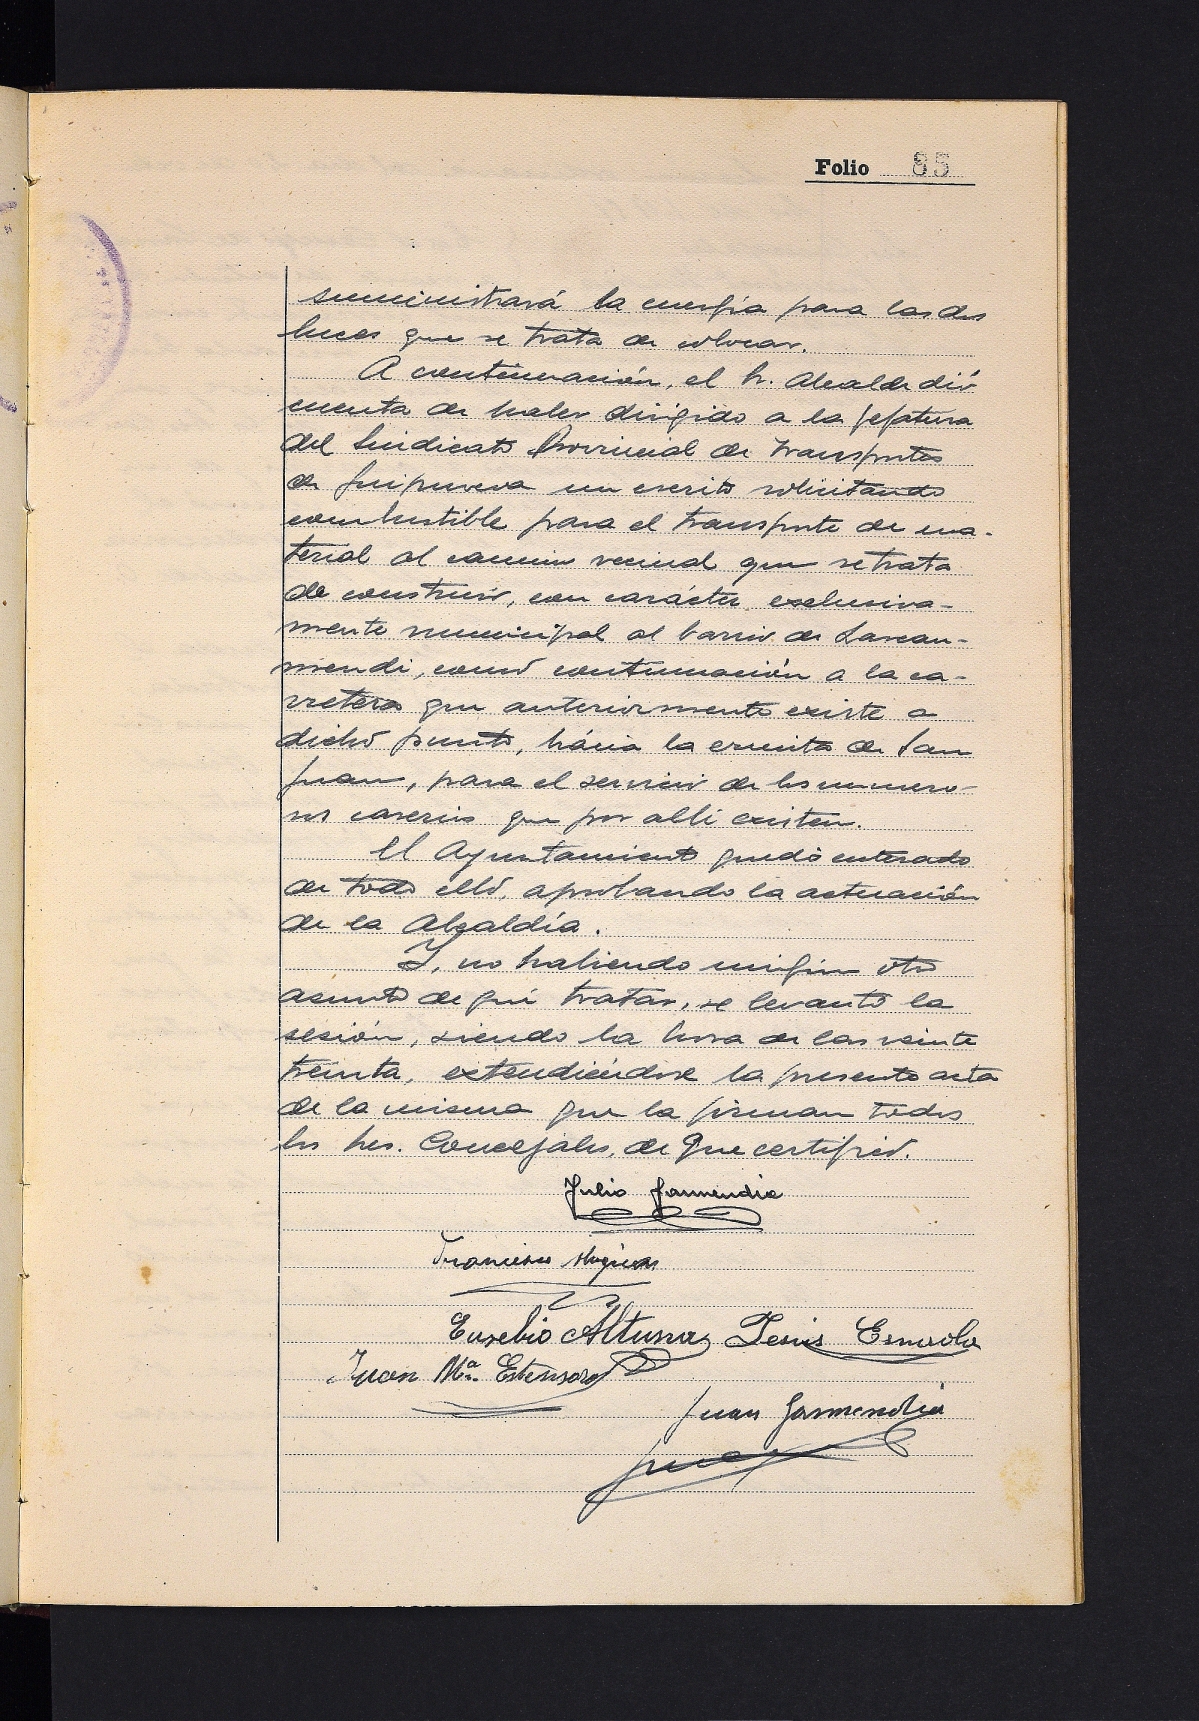 Folio 85
suministrará la energía para las dos
luces que se trata de colocar.
A continuación, el Sr. Alcalde dió
cuenta de haber dirigido a la Jefatura
del Sindicato Provincial de Transportes
de Guipuzcoa un escrito solicitando
combustible para el transporte de ma-
terial al camino vecinal que se trata
de construir, con carácter exclusiva-
mente municipal al barrio de Larcan-
mendi, como continuación a la ca-
rretera que anteriormente existe a
dicho punto, hácia la ermita de San
Juan, para el servicio de los numero-
sos caserios que por alli existen.
El Ayuntamiento quedó enterado
de todo ello, aprobando la actuación
de la Alcaldía.
Y, no habiendo ningún otro
asunto de qué tratar, se levantó la
sesión, siendo la hora de las veinte
treinta, extendiéndose la presente acta
de la misma que la firman todos
los Sres. Concejales, de que certifico.
Julio Garmendia
Francisco
Eusebio Altuna Jesús Esnaola
Juan Mª. Estensoro
Juan Garmendia